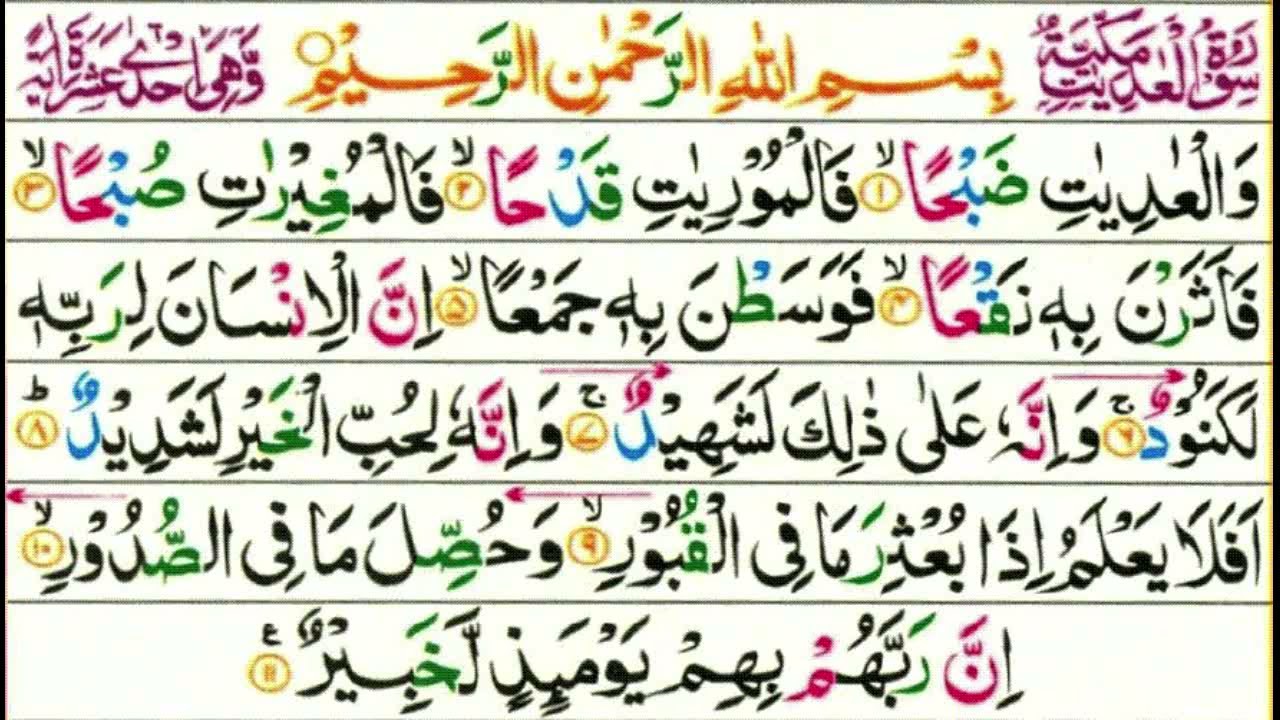 سُوْرَةُ الْعٰدِيٰتِ مَكِّيَّةٌ بِسْمِ اللّٰهِ الرَّحْمٰنِ الرَّحِيْمِ وَّهِيَ اِحْدٰى عَشْرَةَ اٰيَةً
وَالْعٰدِيٰتِ ضَبْحًا ۙ﴿۱﴾ فَالْمُوْرِيٰتِ قَدْحًا ۙ﴿۲﴾ فَالْمُغِيْرٰتِ صُبْحًا ۙ﴿۳﴾
فَاَثَرْنَ بِهٖ نَقْعًا ۙ﴿۴﴾ فَوَسَطْنَ بِهٖ جَمْعًا ۙ﴿۵﴾ اِنَّ الْاِنْسَانَ لِرَبِّهٖ
لَكَنُوْدٌ ۚ﴿۶﴾ وَاِنَّهٗ عَلٰى ذٰلِكَ لَشَهِيْدٌ ۚ﴿۷﴾ وَاِنَّهٗ لِحُبِّ الْخَيْرِ لَشَدِيْدٌ ؕ﴿۸﴾
اَفَلَا يَعْلَمُ اِذَا بُعْثِرَ مَا فِى الْقُبُوْرِ ۙ﴿۹﴾ وَحُصِّلَ مَا فِى الصُّدُوْرِ ۙ﴿۱۰﴾
اِنَّ رَبَّهُمْ بِهِمْ يَوْمَئِذٍ لَّخَبِيْرٌ ﴿۱۱﴾ ع